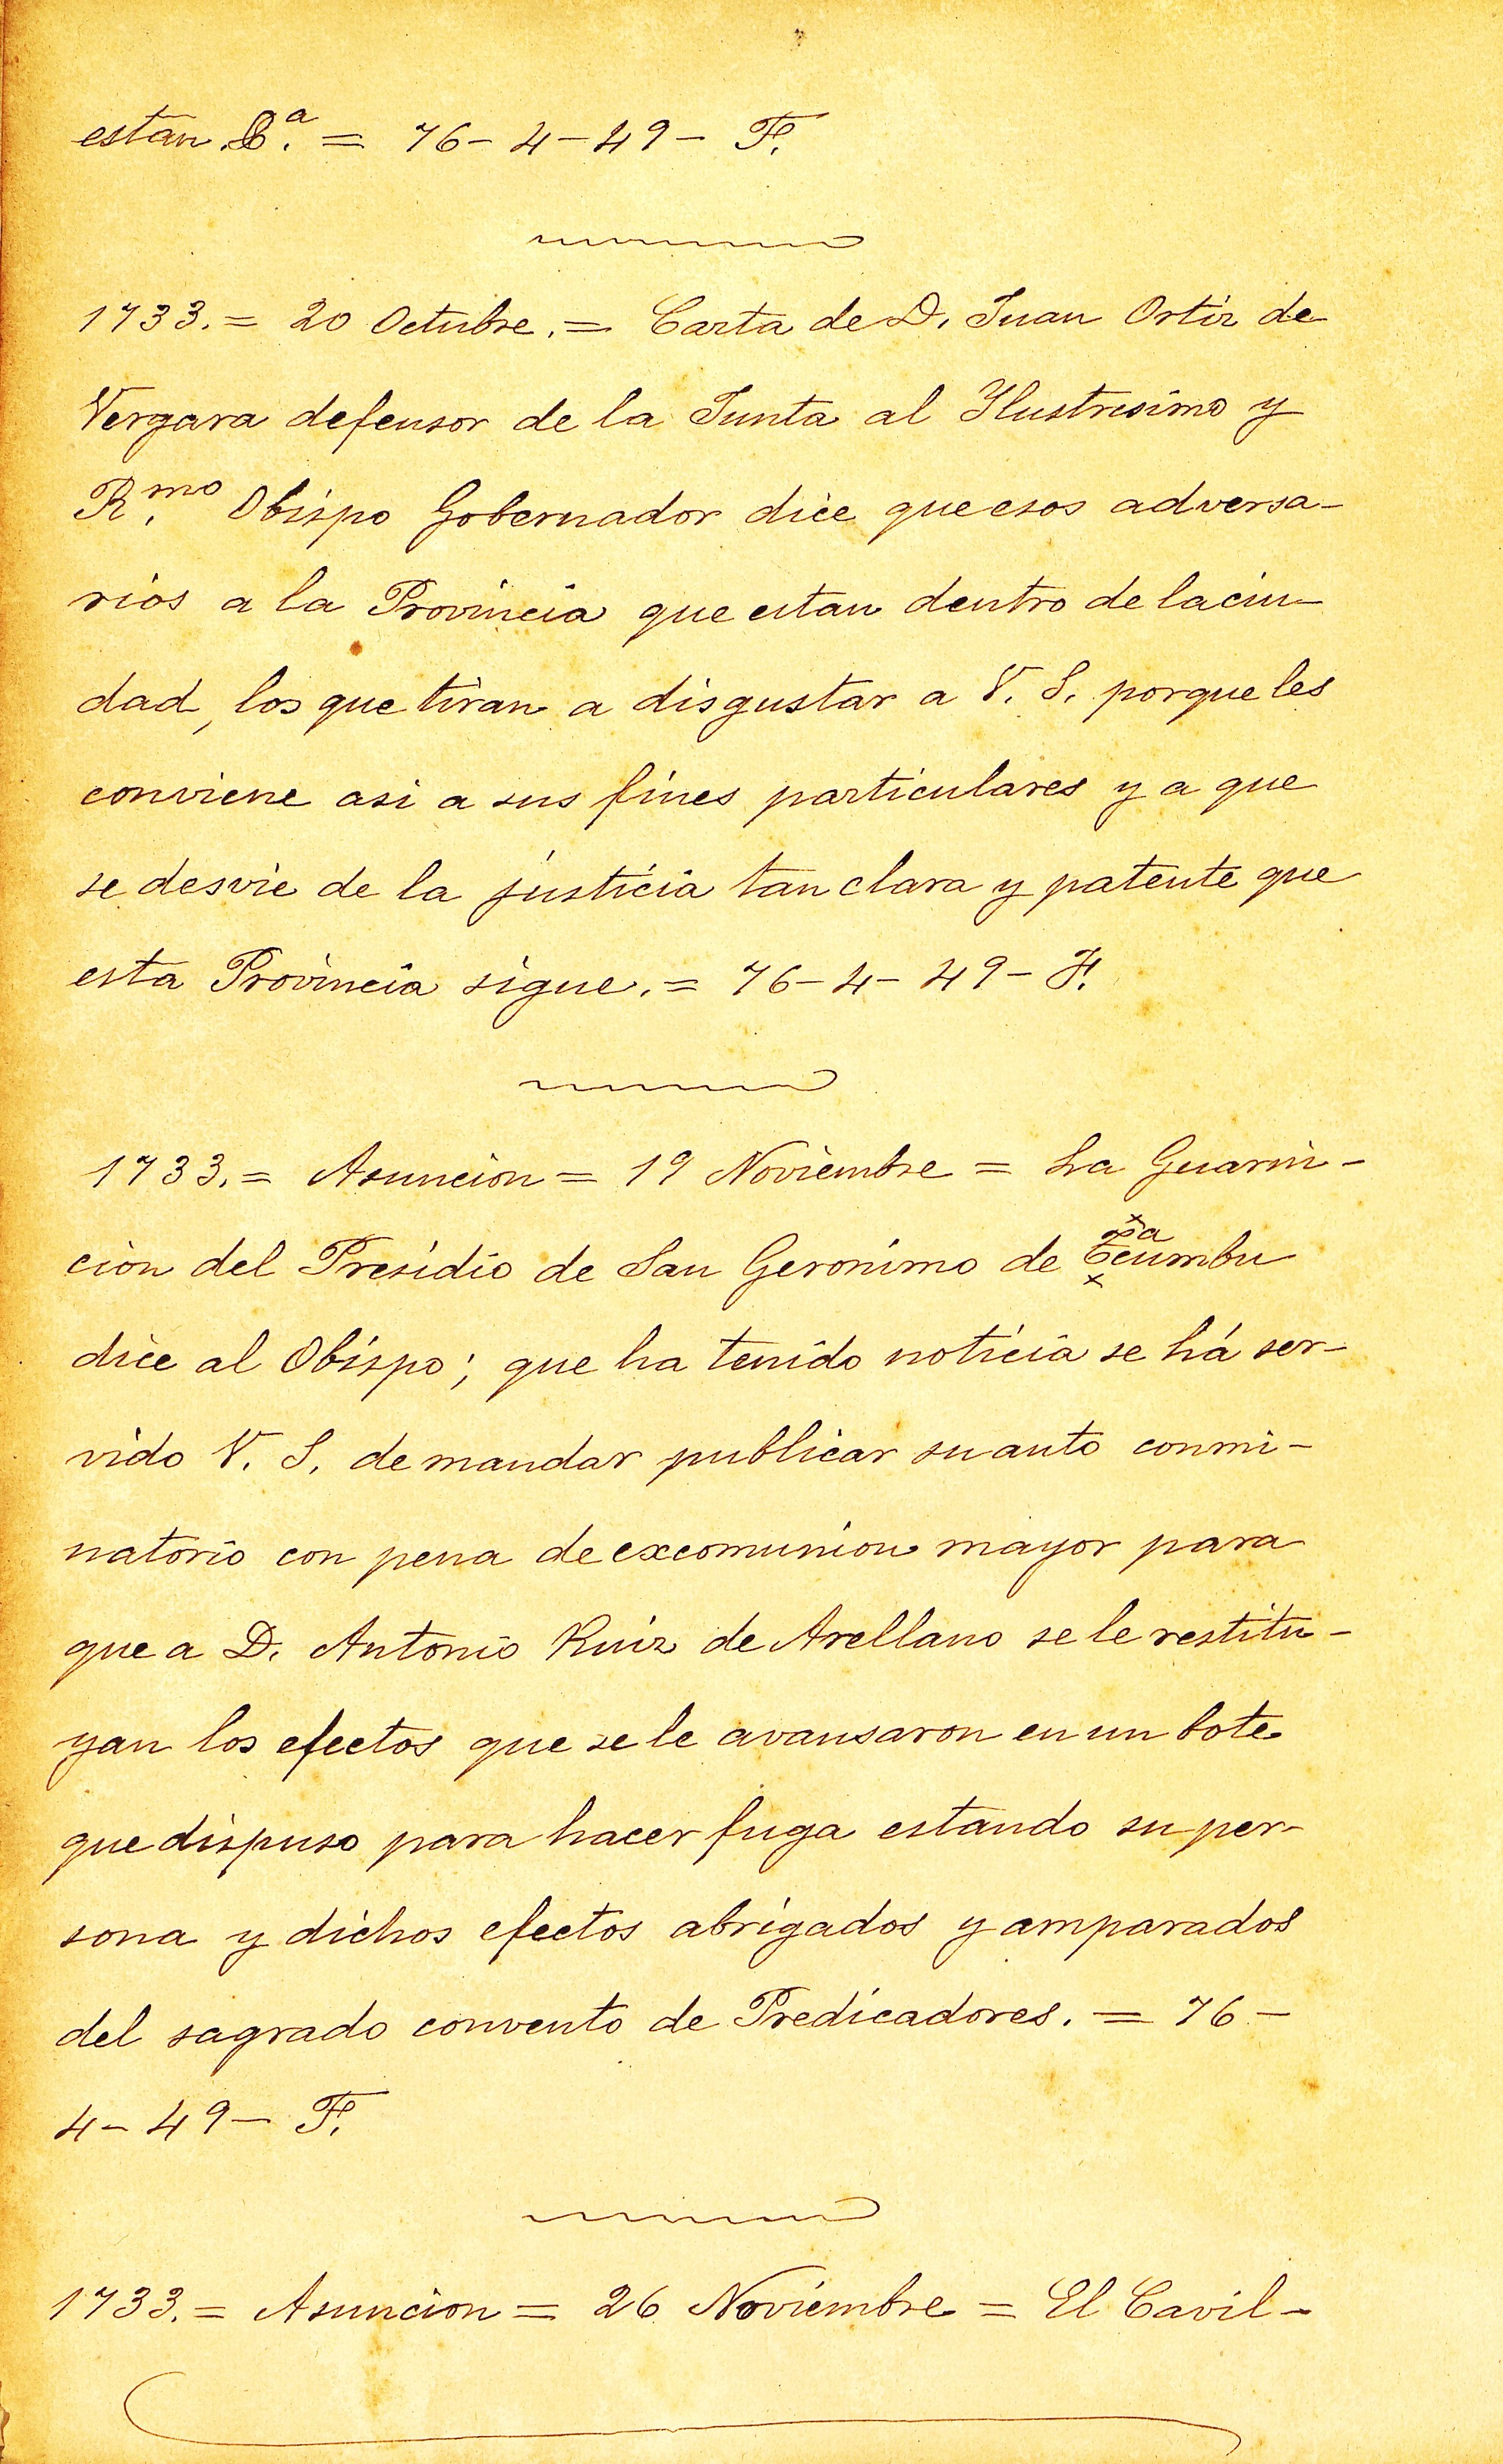 estan S.ª = 76-4-49- F.
1733. = 20 Octubre. = Carta de D. Juan Ortiz de
Vergara defensor de la Junta al Ylustresimo y
R.mo Obispo Gobernador dice que esos adversa-
rios a la Provincia que estan dentro de la ciu-
dad, los que tiran a disgustar a V. S. porque les
conviene asi a sus fines particulares y a que
se desvie de la justicia tan clara y patente que
esta Provincia sigue. = 76-4-49- F.
1733. = Asuncion = 19 Noviembre = La Guarni-
cion del Presidio de San Geronimo de cumbu
dice al Obispo; que ha tenido noticia se há ser-
vido V. S. de mandar publicar su auto conmi-
natorio con pena de excomunion mayor para
que a D. Antonio Ruiz de Arellano se le restitu-
yan los efectos que se le avansaron en un bote
que dispuso para hacer fuga estando su per-
sona y dichos efectos abrigados y amparados
del sagrado convento de Predicadores. = 76-
4-49- F.
1733. = Asuncion = 26 Noviembre = El Cavil-